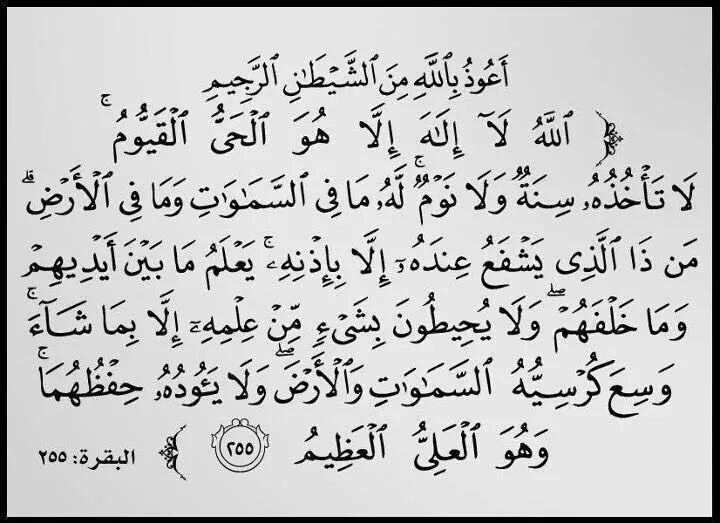 أَعُوذُ بِٱللَّهِ مِنَ ٱلشَّيْطَـٰنِ ٱلرَّجِيمِ
﴿ ٱللَّهُ لَآ إِلَـٰهَ إِلَّا هُوَ ٱلْحَىُّ ٱلْقَيُّومُ ۚ
لَا تَأْخُذُهُۥ سِنَةٌ وَلَا نَوْمٌ ۚ لَّهُۥ مَا فِى ٱلسَّمَـٰوَٰتِ وَمَا فِى ٱلْأَرْضِ ۗ
مَن ذَا ٱلَّذِى يَشْفَعُ عِندَهُۥٓ إِلَّا بِإِذْنِهِۦ ۚ يَعْلَمُ مَا بَيْنَ أَيْدِيهِمْ
وَمَا خَلْفَهُمْ ۖ وَلَا يُحِيطُونَ بِشَىْءٍ مِّنْ عِلْمِهِۦٓ إِلَّا بِمَا شَآءَ ۚ
وَسِعَ كُرْسِيُّهُ ٱلسَّمَـٰوَٰتِ وَٱلْأَرْضَ ۖ وَلَا يَـُٔودُهُۥ حِفْظُهُمَا ۚ
وَهُوَ ٱلْعَلِىُّ ٱلْعَظِيمُ ٢٥٥ ﴾ البقرة: ٢٥٥